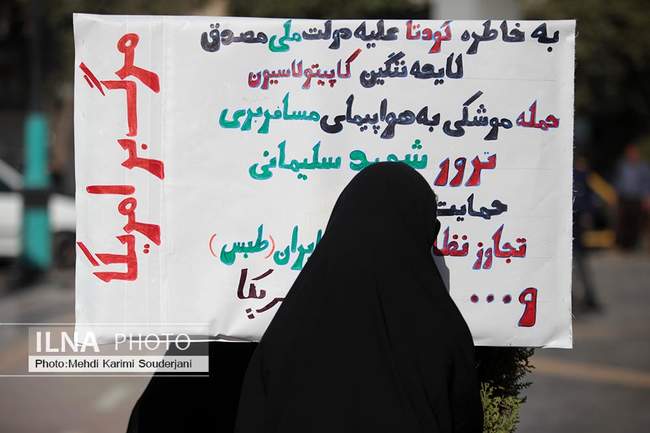 به خاطره کودتا علیه دولت ملی مصدق
لایحه ننگین کاپیتولاسیون
حمله موشکی به هواپیمای مسافربری
ترور شهید سلیمانی
حمایت
تجاوز ایران (طبس)
و...
مرگ بر امریکا
ILNA PHOTO
Photo:Mehdi Karimi Souderjani